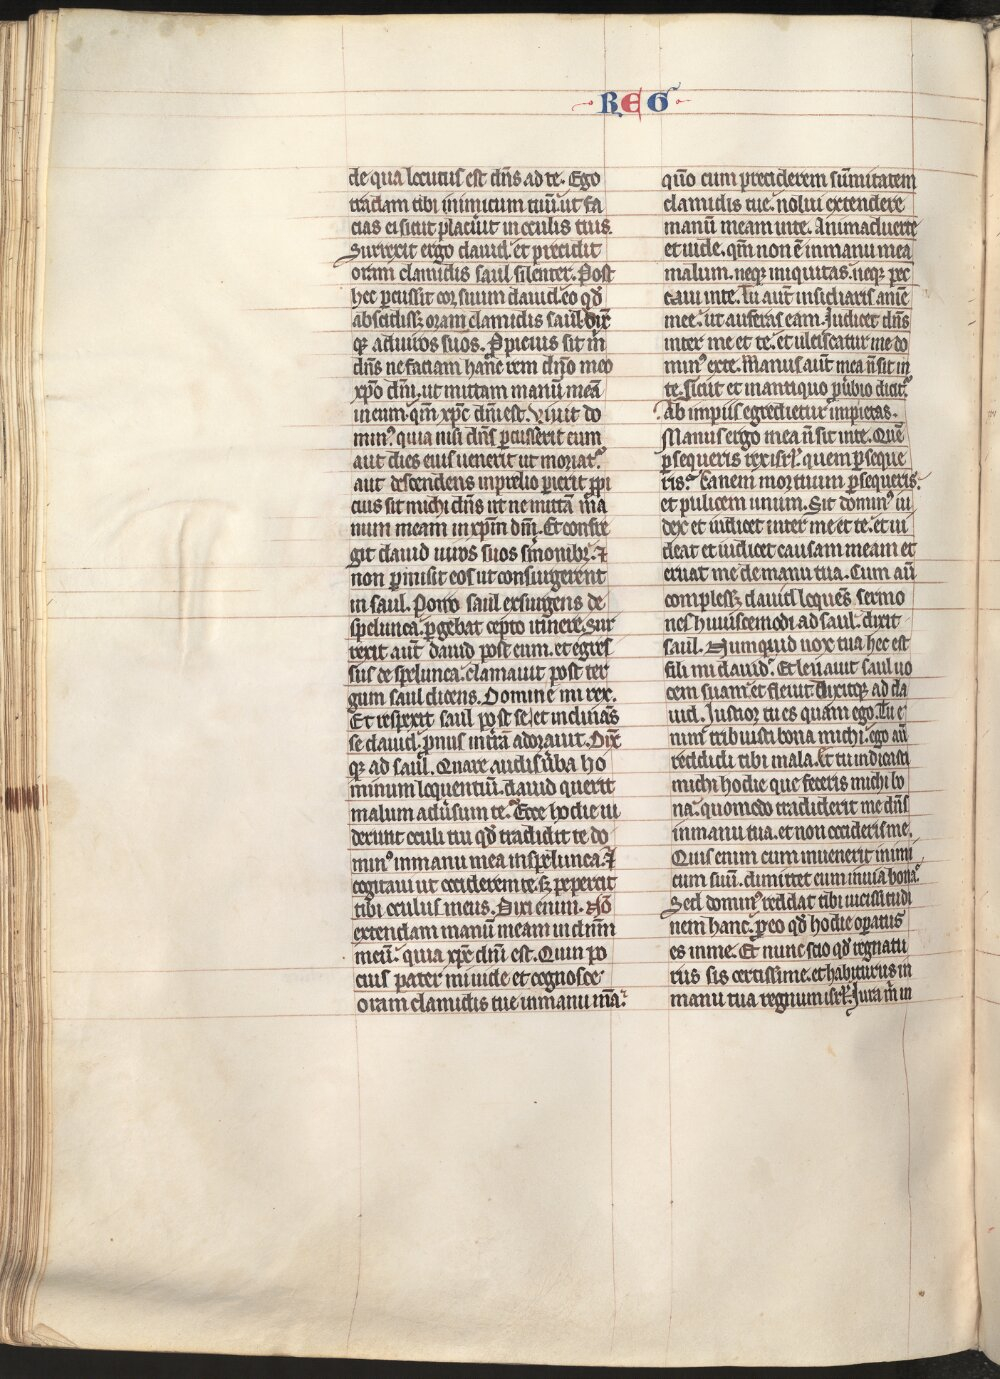 REG
de qua locutus est dn̄s ad te. Ego
tradam tibi inimicum tuū. ut fa
cias ei sicut placuit in oculis tuis.
Surrexit ergo dauid. et precidit
oram clamidis saul silenter. Post
hec ꝑcussit cor suum dauid. eo qd̄
abscidissꝫ oram clamidis saul. dix̄
qꝫ ad uiros suos. Ppicius sit m̄
dn̄s ne faciam hanc rem dn̄o meo
xp̄o dn̄i. ut mittam manū meā
in eum. qm̄ xp̄c dn̄i est. Viuit do
minꝰ. quia nisi dn̄s ꝑcusserit eum
aut dies eius uenerit ut moriat᷑.
aut descendens in prelio ꝑierit ꝓpi
cius sit michi dn̄s ut ne mittā ma
num meam in xp̄m dn̄i. Et confre
git dauid uiros suos s̓monibꝫ. ⁊
non ꝑmisit eos ut consurgerent
in saul. Porro saul exsurgens de
spelunca. ꝑgebat cepto itinere. Sur
rexit aut̄ dauid post eum. et egres
sus de spelunca. clamauit post ter
gum saul dicens. Domine mi rex.
Et respexit saul post se. et inclinās
se dauid. ꝓnus in t̓rā adorauit. Dix̄
qꝫ ad saul. Quare audis ūba ho
minum loquentiū. dauid querit
malum adūsum te. Ecce hodie ui
derunt oculi tui qd̄ tradidit te do
minꝰ in manu mea in spelunca. ⁊
cogitaui ut occiderem te. sꝫ pepercit
tibi oculus meus. Dixi enim. Nō
extendam manū meam in dn̄m
meū. quia xp̄c dn̄i est. Quin po
cius pater mi uide et cognosce
oram clamidis tue in manu m̄a.
quō cum preciderem sūmitatem
clamidis tue. nolui extendere
manū meam in te. Animaduerte
et uide. qm̄ non ē in manu mea
malum. neqꝫ iniquitas. neqꝫ pec
caui in te. Tu aut̄ insidiaris anime
mee. ut auferas eam. Iudicet dn̄s
inter me et te. et ulciscatur me do
minꝰ ex te. Manus aut̄ mea n̄ sit in
te. sicut et in antiquo ꝓūbio dicit᷑.
Ab impiis egredietur impietas.
Manus ergo mea n̄ sit in te. Quē
ꝑsequeris rex isrl̄. quem ꝑseque
ris. Canem mortuum ꝑsequeris.
et pulicem unum. Sit dominꝰ iu
dex et iudicet inter me et te. et ui
deat et iudicet causam meam et
eruat me de manu tua. Cum aū
complessꝫ dauid loquēs sermo
nes huiuscemodi ad saul. dixit
saul. Numquid uox tua hec est
fili mi dauid. Et leuauit saul uo
cem suam et fleuit. Dixitqꝫ ad da
uid. Iustior tu es quam ego. Tu e
nim tribuisti bona michi. ego aū
reddidi tibi mala. Et tu indicasti
michi hodie que feceris michi bo
na. quomodo tradiderit me dn̄s
in manu tua. et non occideris me.
Quis enim cum inuenerit inimi
cum suū. dimittet eum in uia bona.
Sed dominꝰ reddat tibi uicissitudi
nem hanc. ꝓ eo qd̄ hodie oꝑatus
es in me. Et nunc scio qd̄ regnatu
rus sis certissime. et habiturus in
manu tua regnum isrl̄. Iura m̄ in